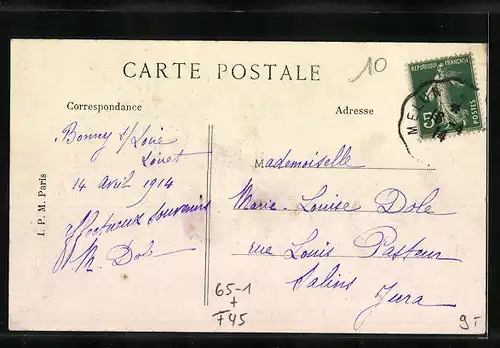 CARTE POSTALE
10
RÉPUBLIQUE FRANÇAISE
5
POSTES
MEL
Correspondance
Adresse
I. P. M. Paris
Bonny s/ Loire
Loiret
14 Avril 1914
affectueux souvenirs
M. Dole
Mademoiselle
Marie-Louise Dole
rue Louis Pasteur
Salins
Jura
65-1
+
F45
9-